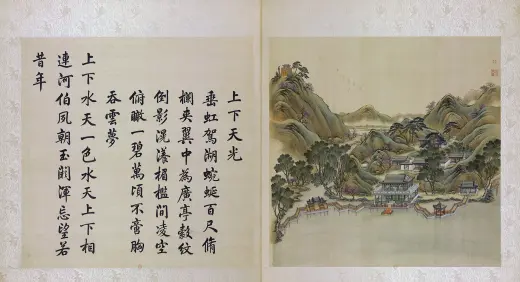 上下天光
垂虹駕湖蜿蜒百尺脩
欄夾翼中為廣亭縠紋
倒影滉瀁楣檻間凌空
俯瞰一碧萬頃不啻胸
吞雲夢
上下水天一色水天上下相
連河伯夙朝玉闕渾忘望若
昔年